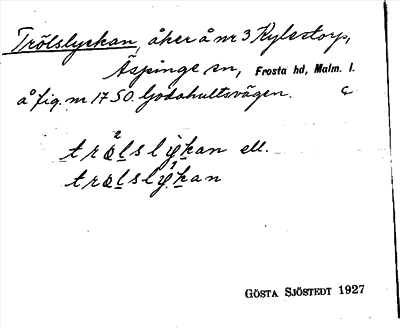 Trölslyckan, åker å nr 3 Kylestorp,
Äspinge sn, Frosta hd, Malm. l.
å fig. nr 17 SO Godahultsvägen. c
trölslykan ell.
trølslykan
GÖSTA SJÖSTEDT 1927